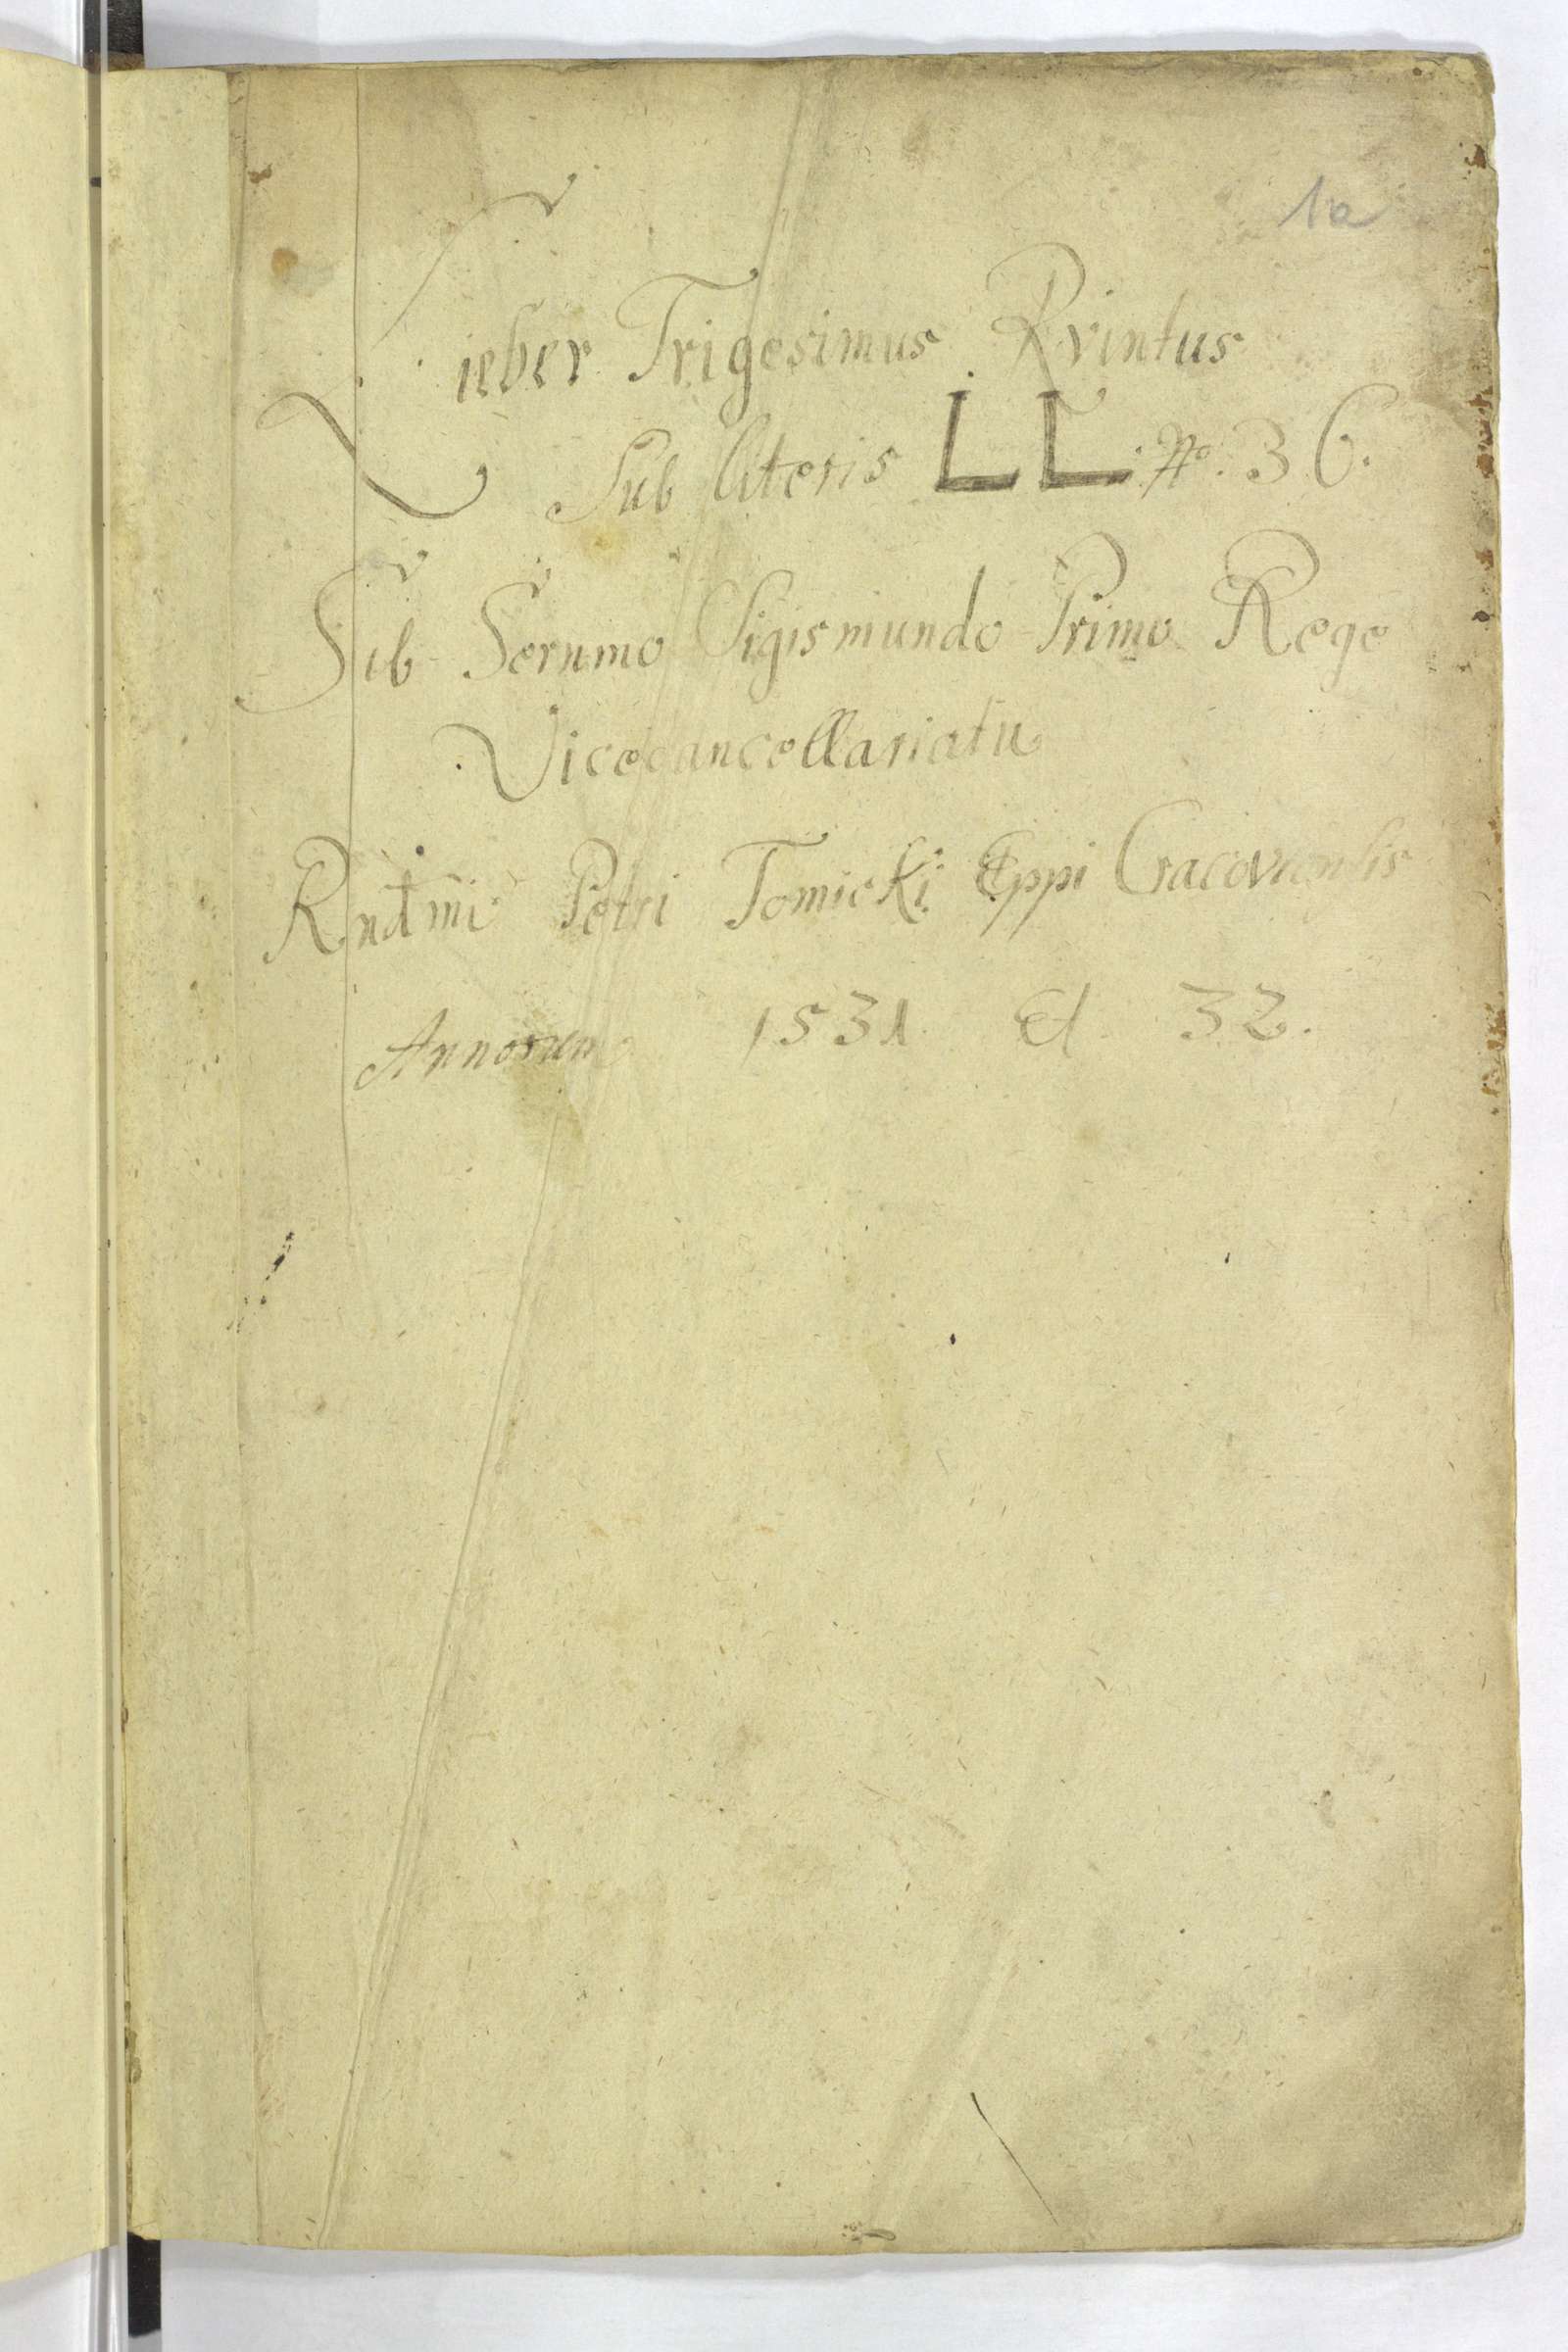 1a
Lieber Trigesimus Qvintus
Sub literis LL. No. 36.
Sub Sernmo Sigismundo Primo Rege
Vicecancellariatu
Rndmi Petri Tomicki Eppi Cracoviensis
Annorum 1531 Et 32.